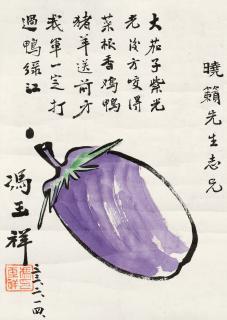 曉籟先生志兄
大茄子紫光
光後方咬得
菜根香鸡鸭
猪羊送前方
我軍一定打
過鴨綠江
馮玉祥
三三·二·一四·